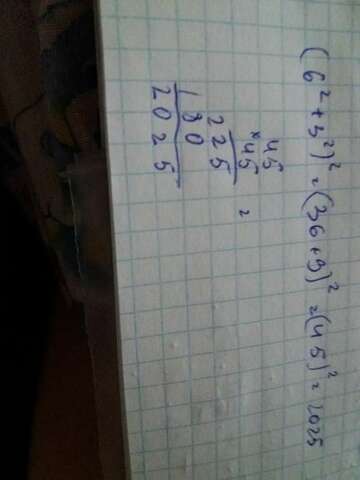 (6²+3²)² = (36+9)² = (45)² = 2025
45
×45 =
225
180
2025